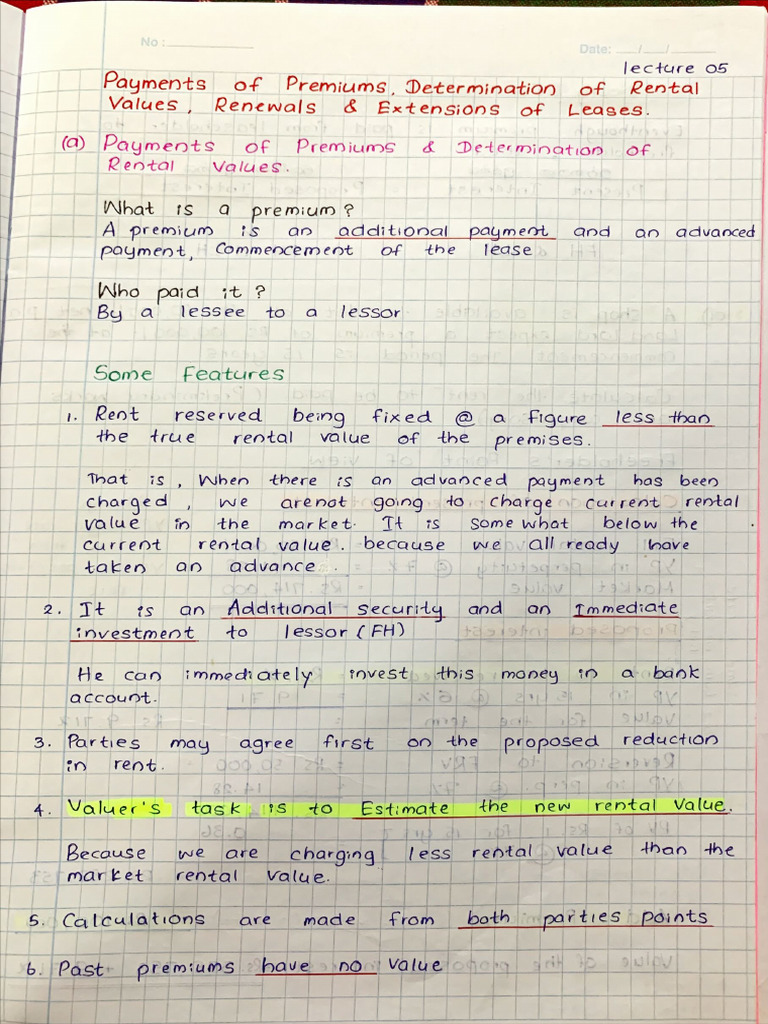 No :
Date: __/__/____
lecture 05
Payments of Premiums, Determination of Rental
Values, Renewals & Extensions of Leases.
(a) Payments of Premiums & Determination of
Rental Values.
What is a premium?
A premium is an additional payment and an advanced
payment, Commencement of the lease
Who paid it ?
By a lessee to a lessor
Some Features
1. Rent reserved being fixed @ a figure less than
the true rental value of the premises.
That is, When there is an advanced payment has been
charged, we arenot going to charge current rental
value in the market. It is some what below the
current rental value. because we all ready have
taken an advance.
2. It is an Additional security and an Immediate
investment to lessor (FH)
He can immediately invest this money in a bank
account.
3. Parties may agree first on the proposed reduction
in rent.
4. Valuer's task is to Estimate the new rental Value.
Because we are charging less rental value than the
market rental value.
5. Calculations are made from both parties points
6. Past premiums have no value